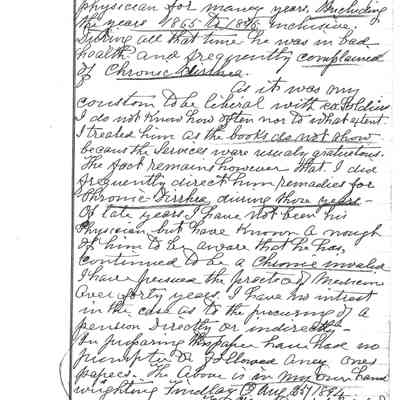 physician for maney years, Including
the years 1865 to 1875 inclusive;
During all that time he was in bad
health and freqquently complained
of Chronic Dirrhea.
As it was my
coustom to be liberal with exSoldiers
I do not know how often nor to what extent
I treated him as the books do not show
becaus the services ware usualy gratuitous.
The fact remains however that I did
frequently direct him remadies for
Chronic Dirrhea during those years-
Of late years I have not been his
Physician but have known a nough
of him to be aware that he has
continued to be a Chronic invalid
I have persued the practice of Medicine
over forty years. I have no intrest
in the case as to the procuring of a
pension Directly or indirectly-
In preparing this paper have had no
prompter or followed aney ones
papers. The above is in my own hand
wrighting Findlay O Aug 25